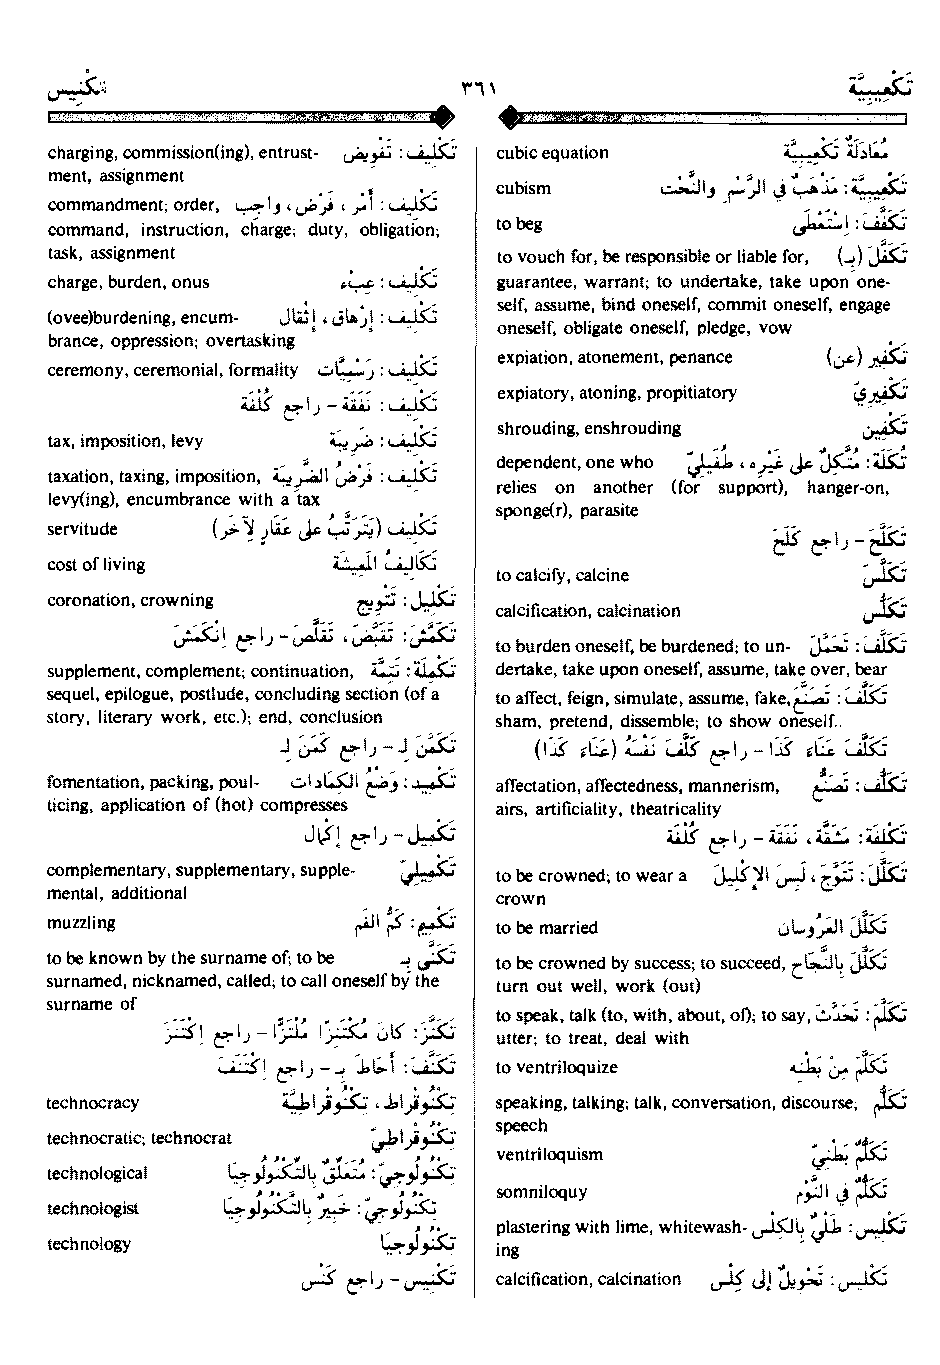 تَكْعِيبِيَّة ٣٦١ تَكْنِيس
مُعَادَلَةٌ تَكْعِيبِيَّة cubic equation
تَكْعِيبِيَّة: مَذْهَبٌ في الرَّسْمِ والنَّحْت cubism
تَكَفَّفَ: اِسْتَعْطَى to beg
تَكَفَّلَ (بِـ) to vouch for, be responsible or liable for,
guarantee, warrant; to undertake, take upon one-
self, assume, bind oneself, commit oneself, engage
oneself, obligate oneself, pledge, vow
تَكْفِير (عن) expiation, atonement, penance
تَكْفِيرِيّ expiatory, atoning, propitiatory
تَكْفِين shrouding, enshrouding
تُكَلَة: مُتَّكِلٌ على غَيْرِه، طُفَيْلِيّ dependent, one who
relies on another (for support), hanger-on,
sponge(r), parasite
تَكَلَّحَ - راجع كَلَحَ
تَكَلَّسَ to calcify, calcine
تَكَلُّس calcification, calcination
تَكَلَّفَ: تَحَمَّلَ to burden oneself, be burdened; to un-
dertake, take upon oneself, assume, take over, bear
تَكَلَّفَ: تَصَنَّعَ to affect, feign, simulate, assume, fake,
sham, pretend, dissemble; to show oneself..
تَكَلَّفَ عَنَاءَ كَذَا - راجع كَلَّفَ نَفْسَهُ (عَنَاءَ كَذَا)
تَكَلُّف: تَصَنُّع affectation, affectedness, mannerism,
airs, artificiality, theatricality
تَكْلِفَة: مَشَقَّة، نَفَقَة - راجع كُلْفَة
تَكَلَّلَ: تَتَوَّجَ، لَبِسَ الإكْلِيلَ to be crowned; to wear a
crown
تَكَلَّلَ العَرُوسَان to be married
تَكَلَّلَ بِالنَّجَاح to be crowned by success; to succeed,
turn out well, work (out)
تَكَلَّمَ: تَحَدَّثَ to speak, talk (to, with, about, of); to say,
utter; to treat, deal with
تَكَلَّمَ مِنْ بَطْنِهِ to ventriloquize
تَكَلُّم speaking, talking; talk, conversation, discourse;
speech
تَكَلُّمٌ بَطْنِيّ ventriloquism
تَكَلُّمٌ في النَّوْم somniloquy
تَكْلِيس: طَلْيٌ بِالكِلْس plastering with lime, whitewash-
ing
تَكْلِيس: تَحْوِيلٌ إلى كِلْس calcification, calcination
تَكْلِيف: تَفْوِيض charging, commission(ing), entrust-
ment, assignment
تَكْلِيف: أَمْر، فَرْض، واجِب commandment; order,
command, instruction, charge; duty, obligation;
task, assignment
تَكْلِيف: عِبْء charge, burden, onus
تَكْلِيف: إرْهَاق، إثْقَال (ovee)burdening, encum-
brance, oppression; overtasking
تَكْلِيف: رَسْمِيَّات ceremony, ceremonial, formality
تَكْلِيف: نَفَقَة - راجع كُلْفَة
تَكْلِيف: ضَرِيبَة tax, imposition, levy
تَكْلِيف: فَرْضُ الضَّرِيبَة taxation, taxing, imposition,
levy(ing), encumbrance with a tax
تَكْلِيف (يَتَرَتَّبُ على عَقَارٍ لآخَر) servitude
تَكَالِيفُ المَعِيشَة cost of living
تَكْلِيل: تَتْوِيج coronation, crowning
تَكَمَّشَ: تَقَبَّضَ، تَقَلَّصَ - راجع اِنْكَمَشَ
تَكْمِلَة: تَتِمَّة supplement, complement; continuation,
sequel, epilogue, postlude, concluding section (of a
story, literary work, etc.); end, conclusion
تَكَمَّنَ لِـ - راجع كَمَنَ لِـ
تَكْمِيد: وَضْعُ الكِمَادَات fomentation, packing, poul-
ticing, application of (hot) compresses
تَكْمِيل - راجع إكْمَال
تَكْمِيلِيّ complementary, supplementary, supple-
mental, additional
تَكْمِيم: كَمُّ الفَم muzzling
تَكَنَّى بِـ to be known by the surname of; to be
surnamed, nicknamed, called; to call oneself by the
surname of
تَكَنَّزَ: كَانَ مُكْتَنِزًا مُلَزَّزًا - راجع اِكْتَنَزَ
تَكَنَّفَ: أَحَاطَ بِـ - راجع اِكْتَنَفَ
تَكْنُوقْرَاط، تَكْنُوقْرَاطِيَّة technocracy
تَكْنُوقْرَاطِيّ technocratic; technocrat
تِكْنُولُوجِيّ: مُتَعَلِّقٌ بِالتِّكْنُولُوجِيَا technological
تِكْنُولُوجِيّ: خَبِيرٌ بِالتِّكْنُولُوجِيَا technologist
تِكْنُولُوجِيَا technology
تَكْنِيس - راجع كَنْس